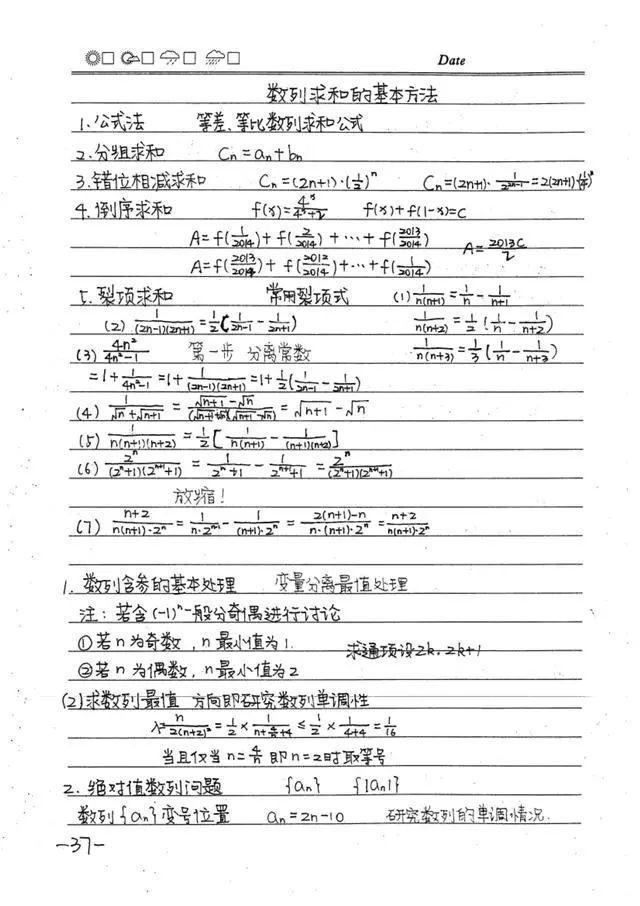 Date
数列求和的基本方法
1.公式法 等差、等比数列求和公式
2.分组求和 Cn=an+bn
3.错位相减求和 Cn=(2n+1)·(1/2)^n Cn=(2n+1)·1/2^(2n-1)=2(2n+1)(1/4)^n
4.倒序求和 f(x)=4^x/(4^x+2) f(x)+f(1-x)=C
A=f(1/2014)+f(2/2014)+…+f(2013/2014) A=2013C/2
A=f(2013/2014)+f(2012/2014)+…+f(1/2014)
5.裂项求和 常用裂项式 (1) 1/(n(n+1))=1/n-1/(n+1)
(2) 1/((2n-1)(2n+1))=1/2[1/(2n-1)-1/(2n+1)] 1/(n(n+2))=1/2(1/n-1/(n+2))
(3) 4n²/(4n²-1) 第一步 分离常数 1/(n(n+3))=1/3(1/n-1/(n+3))
=1+1/(4n²-1)=1+1/((2n-1)(2n+1))=1+1/2(1/(2n-1)-1/(2n+1))
(4) 1/(√n+√(n+1))=(√(n+1)-√n)/((√(n+1)+√n)(√(n+1)-√n))=√(n+1)-√n
(5) 1/(n(n+1)(n+2))=1/2[1/(n(n+1))-1/((n+1)(n+2))]
(6) 2^n/((2^n+1)(2^(n+1)+1))=1/(2^n+1)-1/(2^(n+1)+1)=2^n/((2^n+1)(2^(n+1)+1))
放缩!
(7) (n+2)/(n(n+1)·2^n)=1/(n·2^(n-1))-1/((n+1)·2^n)=(2(n+1)-n)/(n·(n+1)·2^n)=(n+2)/(n(n+1)·2^n)
1.数列含参的基本处理 变量分离最值处理
注:若含(-1)^n一般分奇偶进行讨论
①若n为奇数,n最小值为1. 求通项设2k,2k+1
②若n为偶数,n最小值为2
(2)求数列最值 方向即研究数列单调性
λ=n/(2(n+2)²)=1/2×1/(n+4/n+4)≤1/2×1/(4+4)=1/16
当且仅当n=4/n即n=2时取等号
2.绝对值数列问题 {an} {|an|}
数列{an}变号位置 an=2n-10 研究数列的单调情况.
-37-